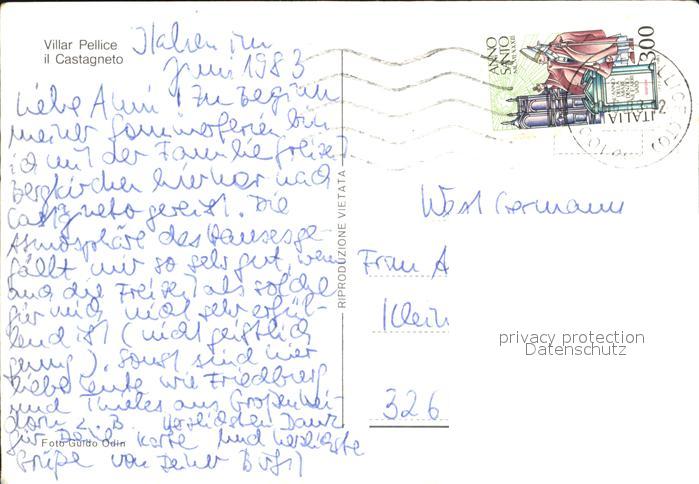 Villar Pellice
il Castagneto
Italien im
Juni 1983
Liebe Anni! Zu Beginn
meiner Sommerferien bin
ich mit der Familienfreizeit
Bergkirchen hierher nach
Castagneto gereist. Die
Atmosphäre des Hauses ge-
fällt mir so sehr gut, wenn
auch die Freizeit als solche
für mich nicht sehr erfül-
lend ist (nicht geistlich
genug). Sonst sind hier
liebe Leute wie Friedberg
und Thieles aus Großenhei-
dorn z. B. Herzlichsten Dank
für Deine Karte und herzlichste
Grüße von Deiner
Foto Guido Odin
RIPRODUZIONE VIETATA
ANNO SANTO
MCMLXXXIII
300
ITALIA
West Germany
Frau A
Klein
326
privacy protection
Datenschutz